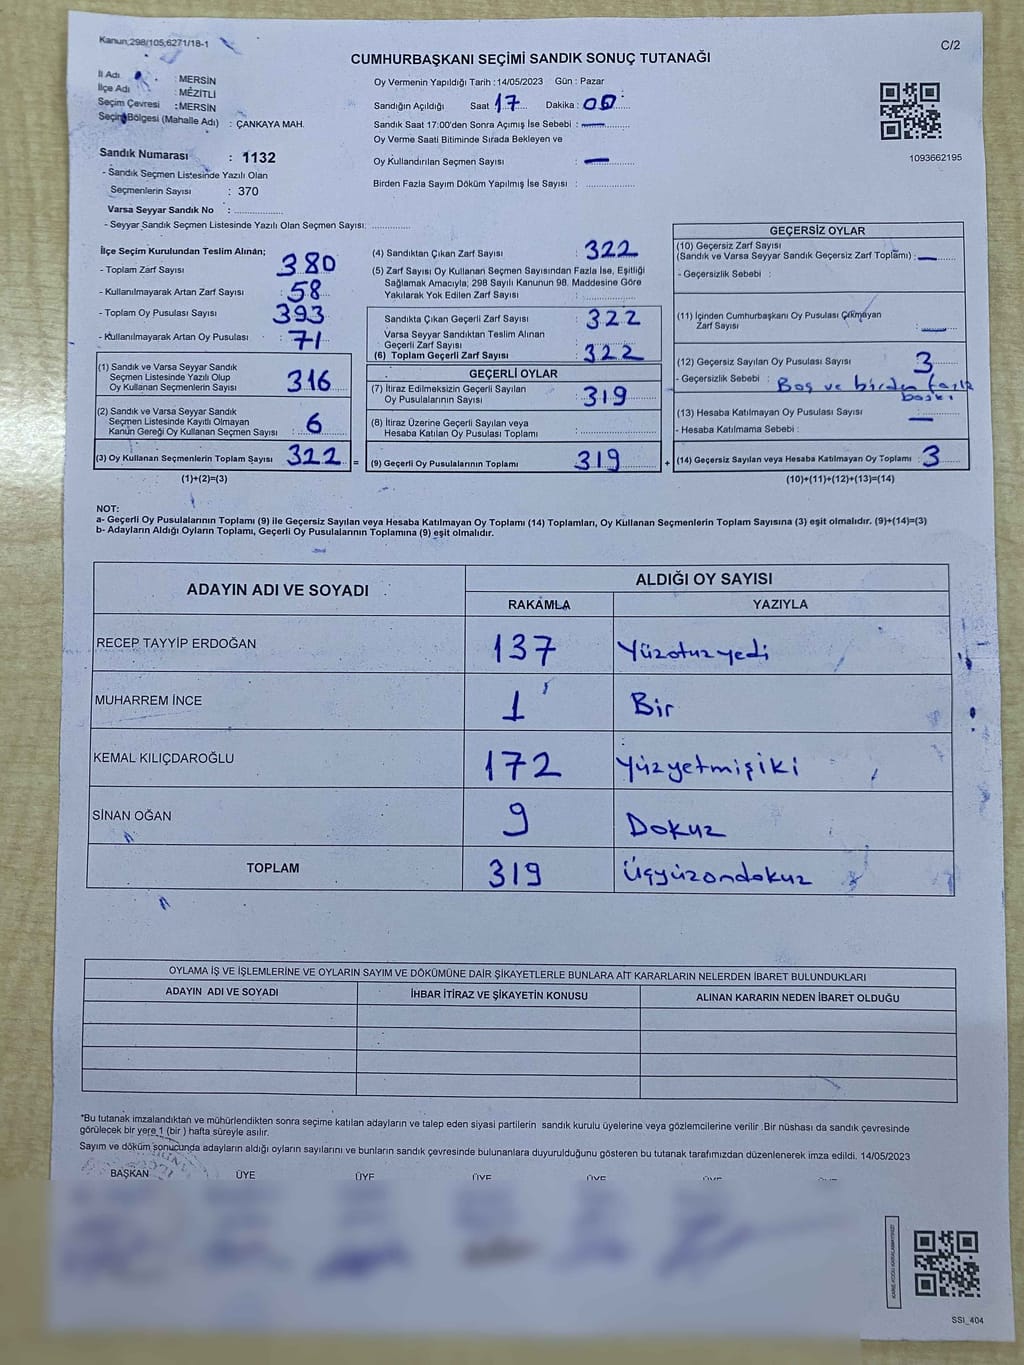 Kanun;298/105,6271/18-1
C/2
CUMHURBAŞKANI SEÇİMİ SANDIK SONUÇ TUTANAĞI
İl Adı : MERSİN
İlçe Adı : MEZİTLİ
Seçim Çevresi : MERSİN
Seçim Bölgesi (Mahalle Adı) : ÇANKAYA MAH.
Oy Vermenin Yapıldığı Tarih : 14/05/2023 Gün : Pazar
Sandığın Açıldığı Saat 17 Dakika : 00
Sandık Saat 17:00'den Sonra Açımış İse Sebebi : —
Oy Verme Saati Bitiminde Sırada Bekleyen ve
Oy Kullandırılan Seçmen Sayısı : —
Birden Fazla Sayım Döküm Yapılmış İse Sayısı : ................
1093662195
Sandık Numarası : 1132
- Sandık Seçmen Listesinde Yazılı Olan
Seçmenlerin Sayısı : 370
Varsa Seyyar Sandık No : ................
- Seyyar Sandık Seçmen Listesinde Yazılı Olan Seçmen Sayısı: ............
İlçe Seçim Kurulundan Teslim Alınan;
- Toplam Zarf Sayısı : 380
- Kullanılmayarak Artan Zarf Sayısı : 58
- Toplam Oy Pusulası Sayısı : 393
- Kullanılmayarak Artan Oy Pusulası : 71
(1) Sandık ve Varsa Seyyar Sandık
Seçmen Listesinde Yazılı Olup
Oy Kullanan Seçmenlerin Sayısı : 316
(2) Sandık ve Varsa Seyyar Sandık
Seçmen Listesinde Kayıtlı Olmayan
Kanun Gereği Oy Kullanan Seçmen Sayısı : 6
(3) Oy Kullanan Seçmenlerin Toplam Sayısı 322 =
(1)+(2)=(3)
(4) Sandıktan Çıkan Zarf Sayısı : 322
(5) Zarf Sayısı Oy Kullanan Seçmen Sayısından Fazla İse, Eşitliği
Sağlamak Amacıyla; 298 Sayılı Kanunun 98. Maddesine Göre
Yakılarak Yok Edilen Zarf Sayısı : ................
Sandıkta Çıkan Geçerli Zarf Sayısı : 322
Varsa Seyyar Sandıktan Teslim Alınan
Geçerli Zarf Sayısı
(6) Toplam Geçerli Zarf Sayısı : 322
GEÇERLİ OYLAR
(7) İtiraz Edilmeksizin Geçerli Sayılan
Oy Pusulalarının Sayısı : 319
(8) İtiraz Üzerine Geçerli Sayılan veya
Hesaba Katılan Oy Pusulası Toplamı : ................
(9) Geçerli Oy Pusulalarının Toplamı 319 +
GEÇERSİZ OYLAR
(10) Geçersiz Zarf Sayısı
(Sandık ve Varsa Seyyar Sandık Geçersiz Zarf Toplamı) : —
- Geçersizlik Sebebi :
(11) İçinden Cumhurbaşkanı Oy Pusulası Çıkmayan
Zarf Sayısı : —
(12) Geçersiz Sayılan Oy Pusulası Sayısı : 3
- Geçersizlik Sebebi : Boş ve birden fazla
baskı
(13) Hesaba Katılmayan Oy Pusulası Sayısı : —
- Hesaba Katılmama Sebebi :
(14) Geçersiz Sayılan veya Hesaba Katılmayan Oy Toplamı 3
(10)+(11)+(12)+(13)=(14)
NOT:
a- Geçerli Oy Pusulalarının Toplamı (9) ile Geçersiz Sayılan veya Hesaba Katılmayan Oy Toplamı (14) Toplamları, Oy Kullanan Seçmenlerin Toplam Sayısına (3) eşit olmalıdır. (9)+(14)=(3)
b- Adayların Aldığı Oyların Toplamı, Geçerli Oy Pusulalarının Toplamına (9) eşit olmalıdır.
ADAYIN ADI VE SOYADI ALDIĞI OY SAYISI
RAKAMLA YAZIYLA
RECEP TAYYİP ERDOĞAN 137 Yüzotuzyedi
MUHARREM İNCE 1 Bir
KEMAL KILIÇDAROĞLU 172 Yüzyetmişiki
SİNAN OĞAN 9 Dokuz
TOPLAM 319 Üçyüzondokuz
OYLAMA İŞ VE İŞLEMLERİNE VE OYLARIN SAYIM VE DÖKÜMÜNE DAİR ŞİKAYETLERLE BUNLARA AİT KARARLARIN NELERDEN İBARET BULUNDUKLARI
ADAYIN ADI VE SOYADI İHBAR İTİRAZ VE ŞİKAYETİN KONUSU ALINAN KARARIN NEDEN İBARET OLDUĞU
*Bu tutanak imzalandıktan ve mühürlendikten sonra seçime katılan adayların ve talep eden siyasi partilerin sandık kurulu üyelerine veya gözlemcilerine verilir .Bir nüshası da sandık çevresinde
görülecek bir yere 1 (bir ) hafta süreyle asılır.
Sayım ve döküm sonucunda adayların aldığı oyların sayılarını ve bunların sandık çevresinde bulunanlara duyurulduğunu gösteren bu tutanak tarafımızdan düzenlenerek imza edildi. 14/05/2023
BAŞKAN ÜYE ÜYE ÜYE ÜYE ÜYE ÜYE
SSI_404